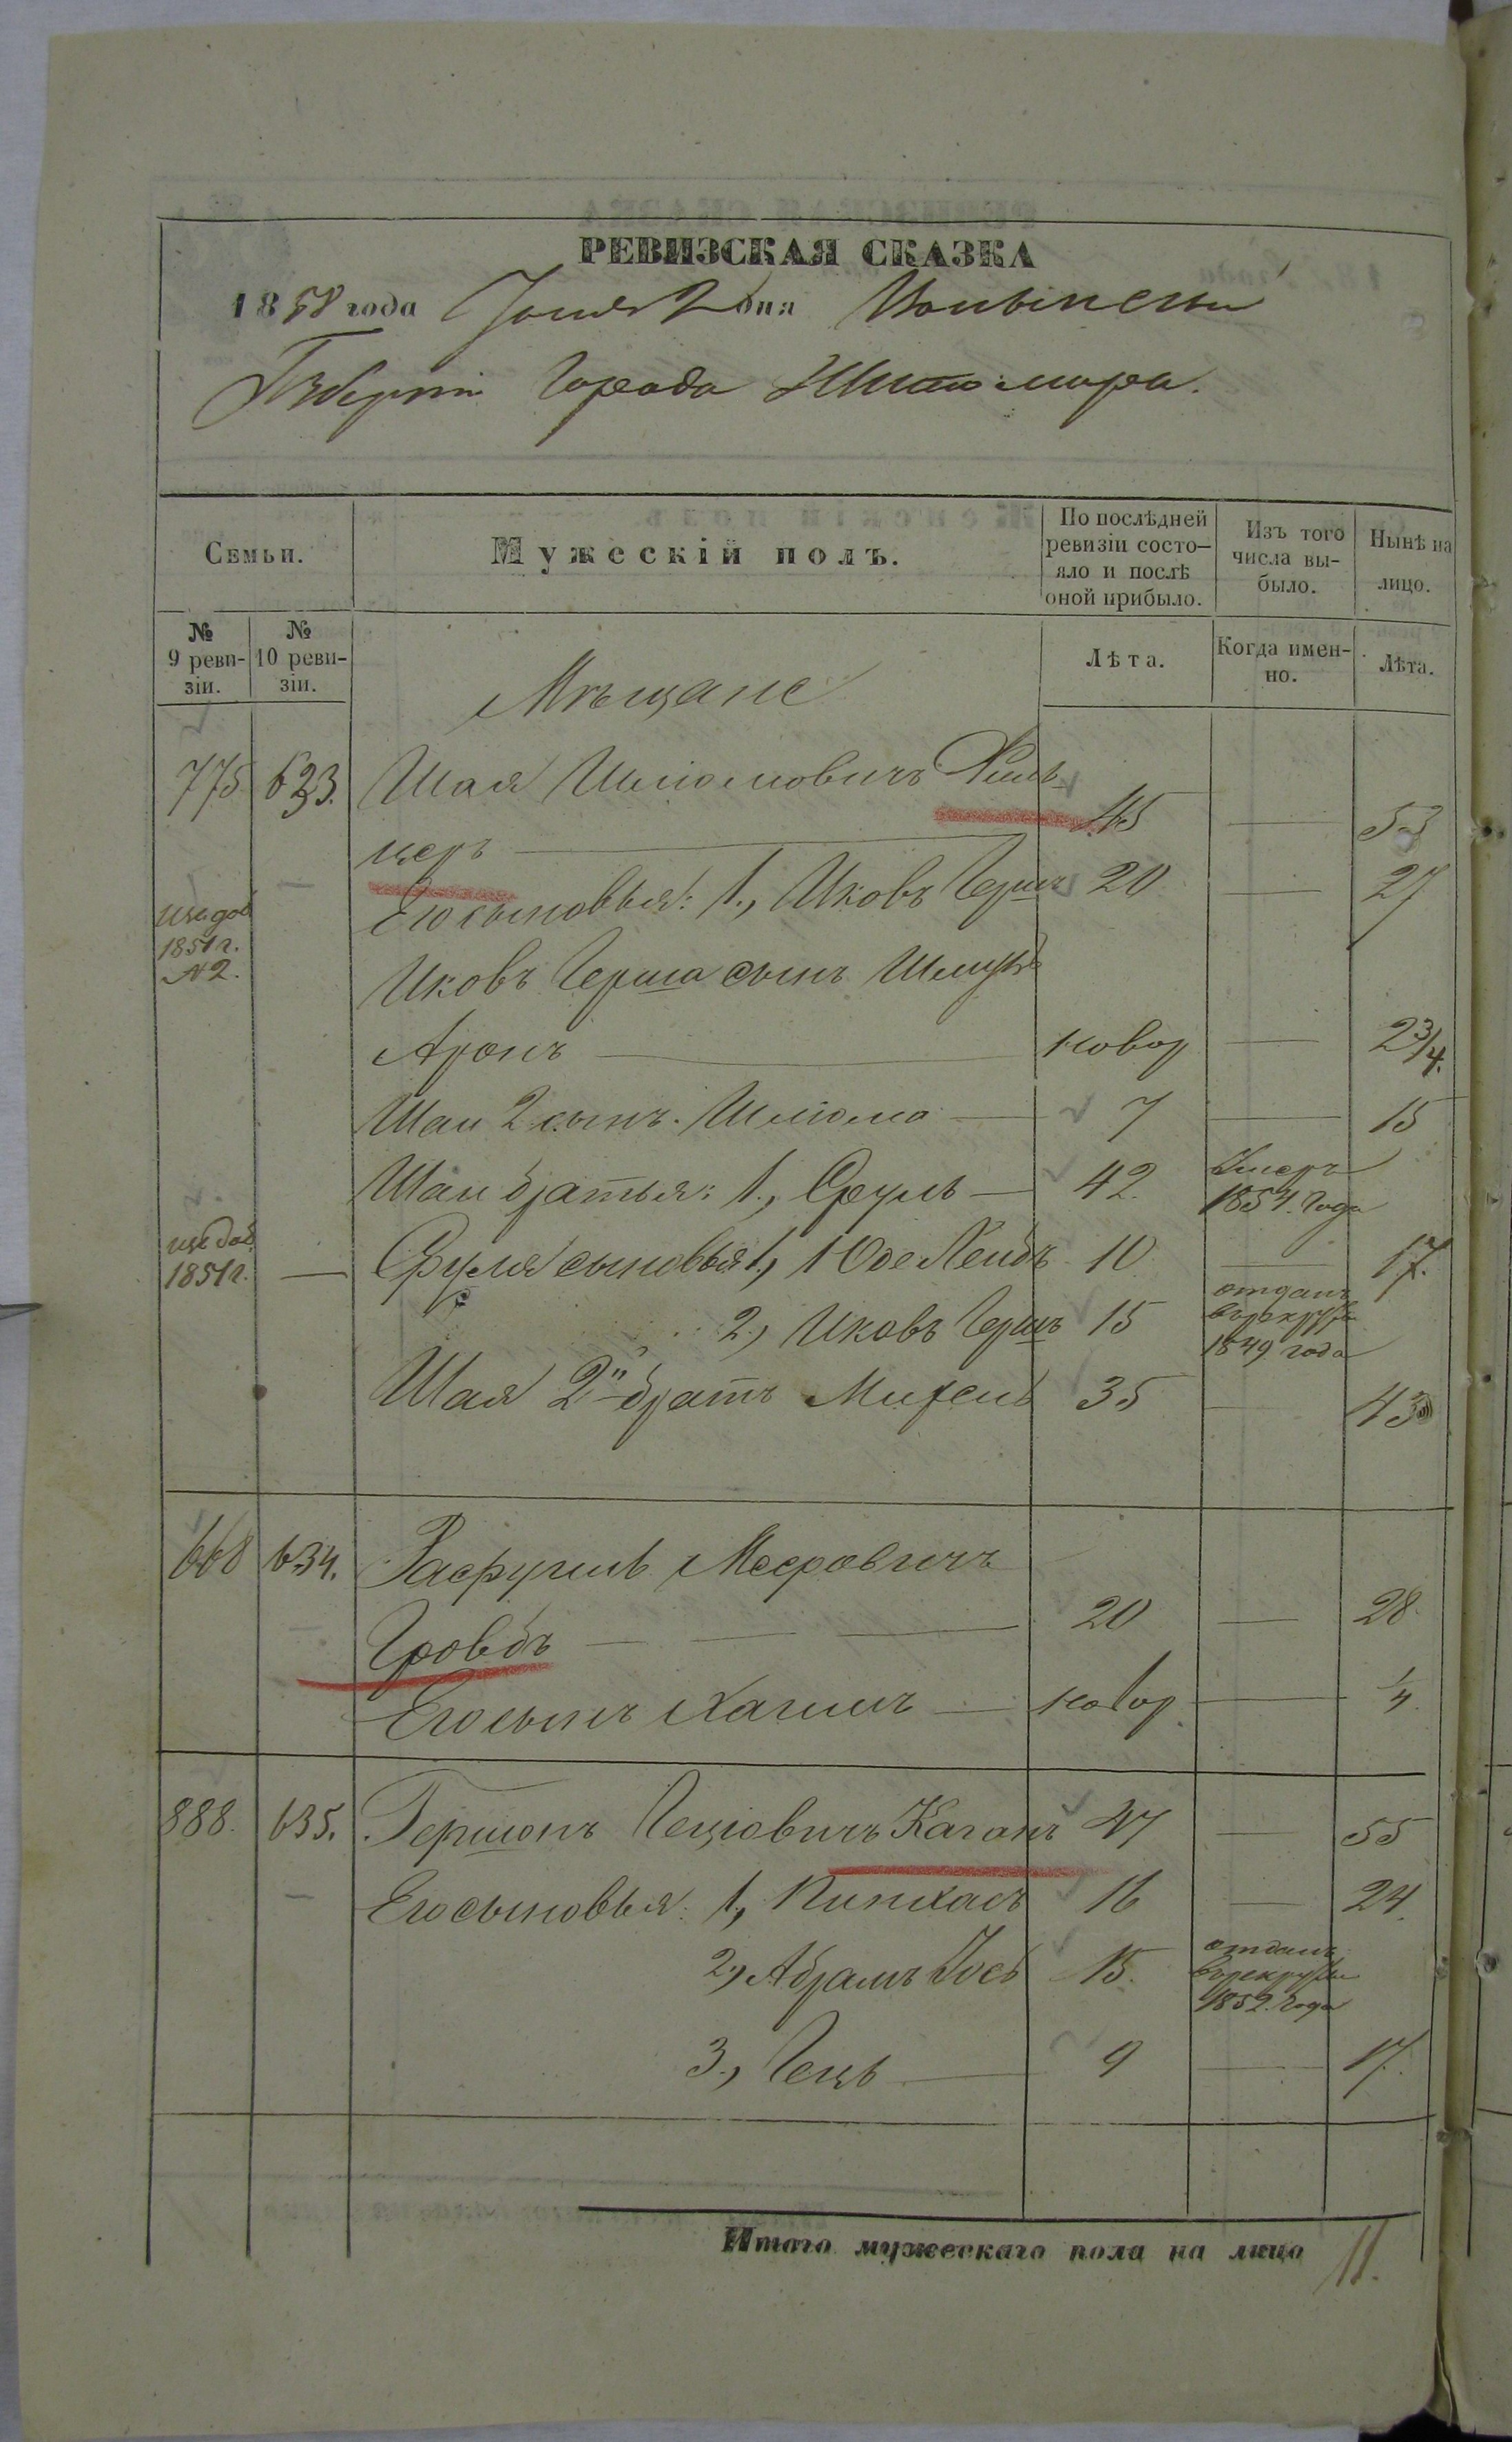 РЕВИЗСКАЯ СКАЗКА
1858 года Іюня 2 дня Волынской
Губерніи Города Житомира.
Семьи.
Мужескій полъ.
По послѣдней ревизіи состо-
яло и послѣ оной прибыло.
Изъ того числа вы-
было.
Нынѣ на лицо.
№ 9 реви-
зіи.
№ 10 реви-
зіи.
Лѣта.
Когда имен-
но.
Лѣта.
Мѣщане
775 633. Шая Шліомовичъ
церъ — 45 — 53
Его сыновья: 1., Ицковъ Гершъ 20 — 27
1851 г.
№ 2.
Ицковъ Герша сынъ
Аронъ — новор — 2 3/4.
Шаи 2 сынъ. Шліома — 7 — 15
Шаи братья: 1., Сруль — 42. Умеръ 1854. года
1851 г. — Сруля сыновья 1., Лейбъ 10 — 17.
2., Ицковъ Гершъ 15 отданъ въ рекруты 1849 года
Шая 2й братъ Михель 35 — 43
668 634. Мееровичъ
— 20 — 28.
Его сынъ Хаимъ — новор — 1/4.
888. 635. Гершонъ Геціовичъ Каганъ 47 — 55
Его сыновья: 1., Пинхасъ 16 — 24.
2., Абрамъ Іось 15. отданъ въ рекруты 1852. года
3., Гецъ — 9 — 17.
Итого мужескаго пола на лицо 11.